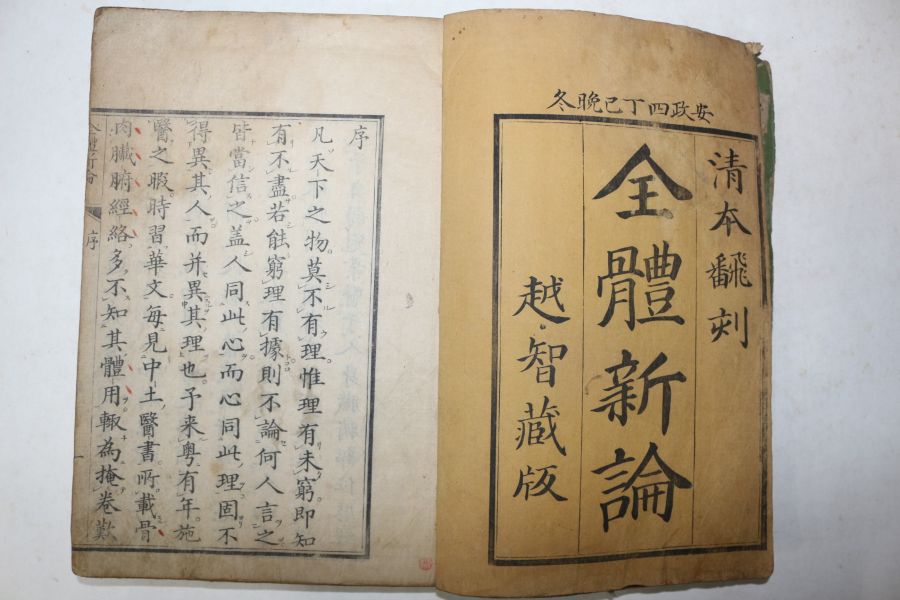 安政四丁巳晩冬
清本飜刻
全體新論
越智藏版
序
凡天下之物莫不有理惟理有未窮即知
有不盡若能窮理有據則不論何人言之
皆當信之盖人同此心而心同此理固不
得異其人而并異其理也予来粤有年施
醫之暇時習華文每見中土醫書所載骨
肉臟腑經絡多不知其體用輒為掩卷歎
序